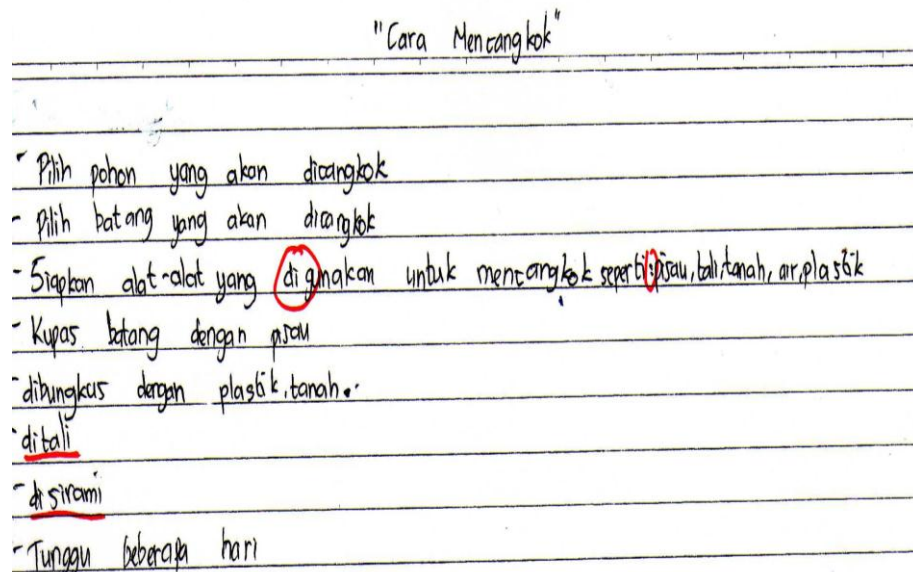 "Cara Mencangkok"
- Pilih pohon yang akan dicangkok
- Pilih batang yang akan dicangkok
- Siapkan alat-alat yang di gunakan untuk mencangkok seperti : pisau, tali, tanah, air, plastik
- Kupas batang dengan pisau
- dibungkus dengan plastik, tanah.
- di tali
- di sirami
- Tunggu beberapa hari